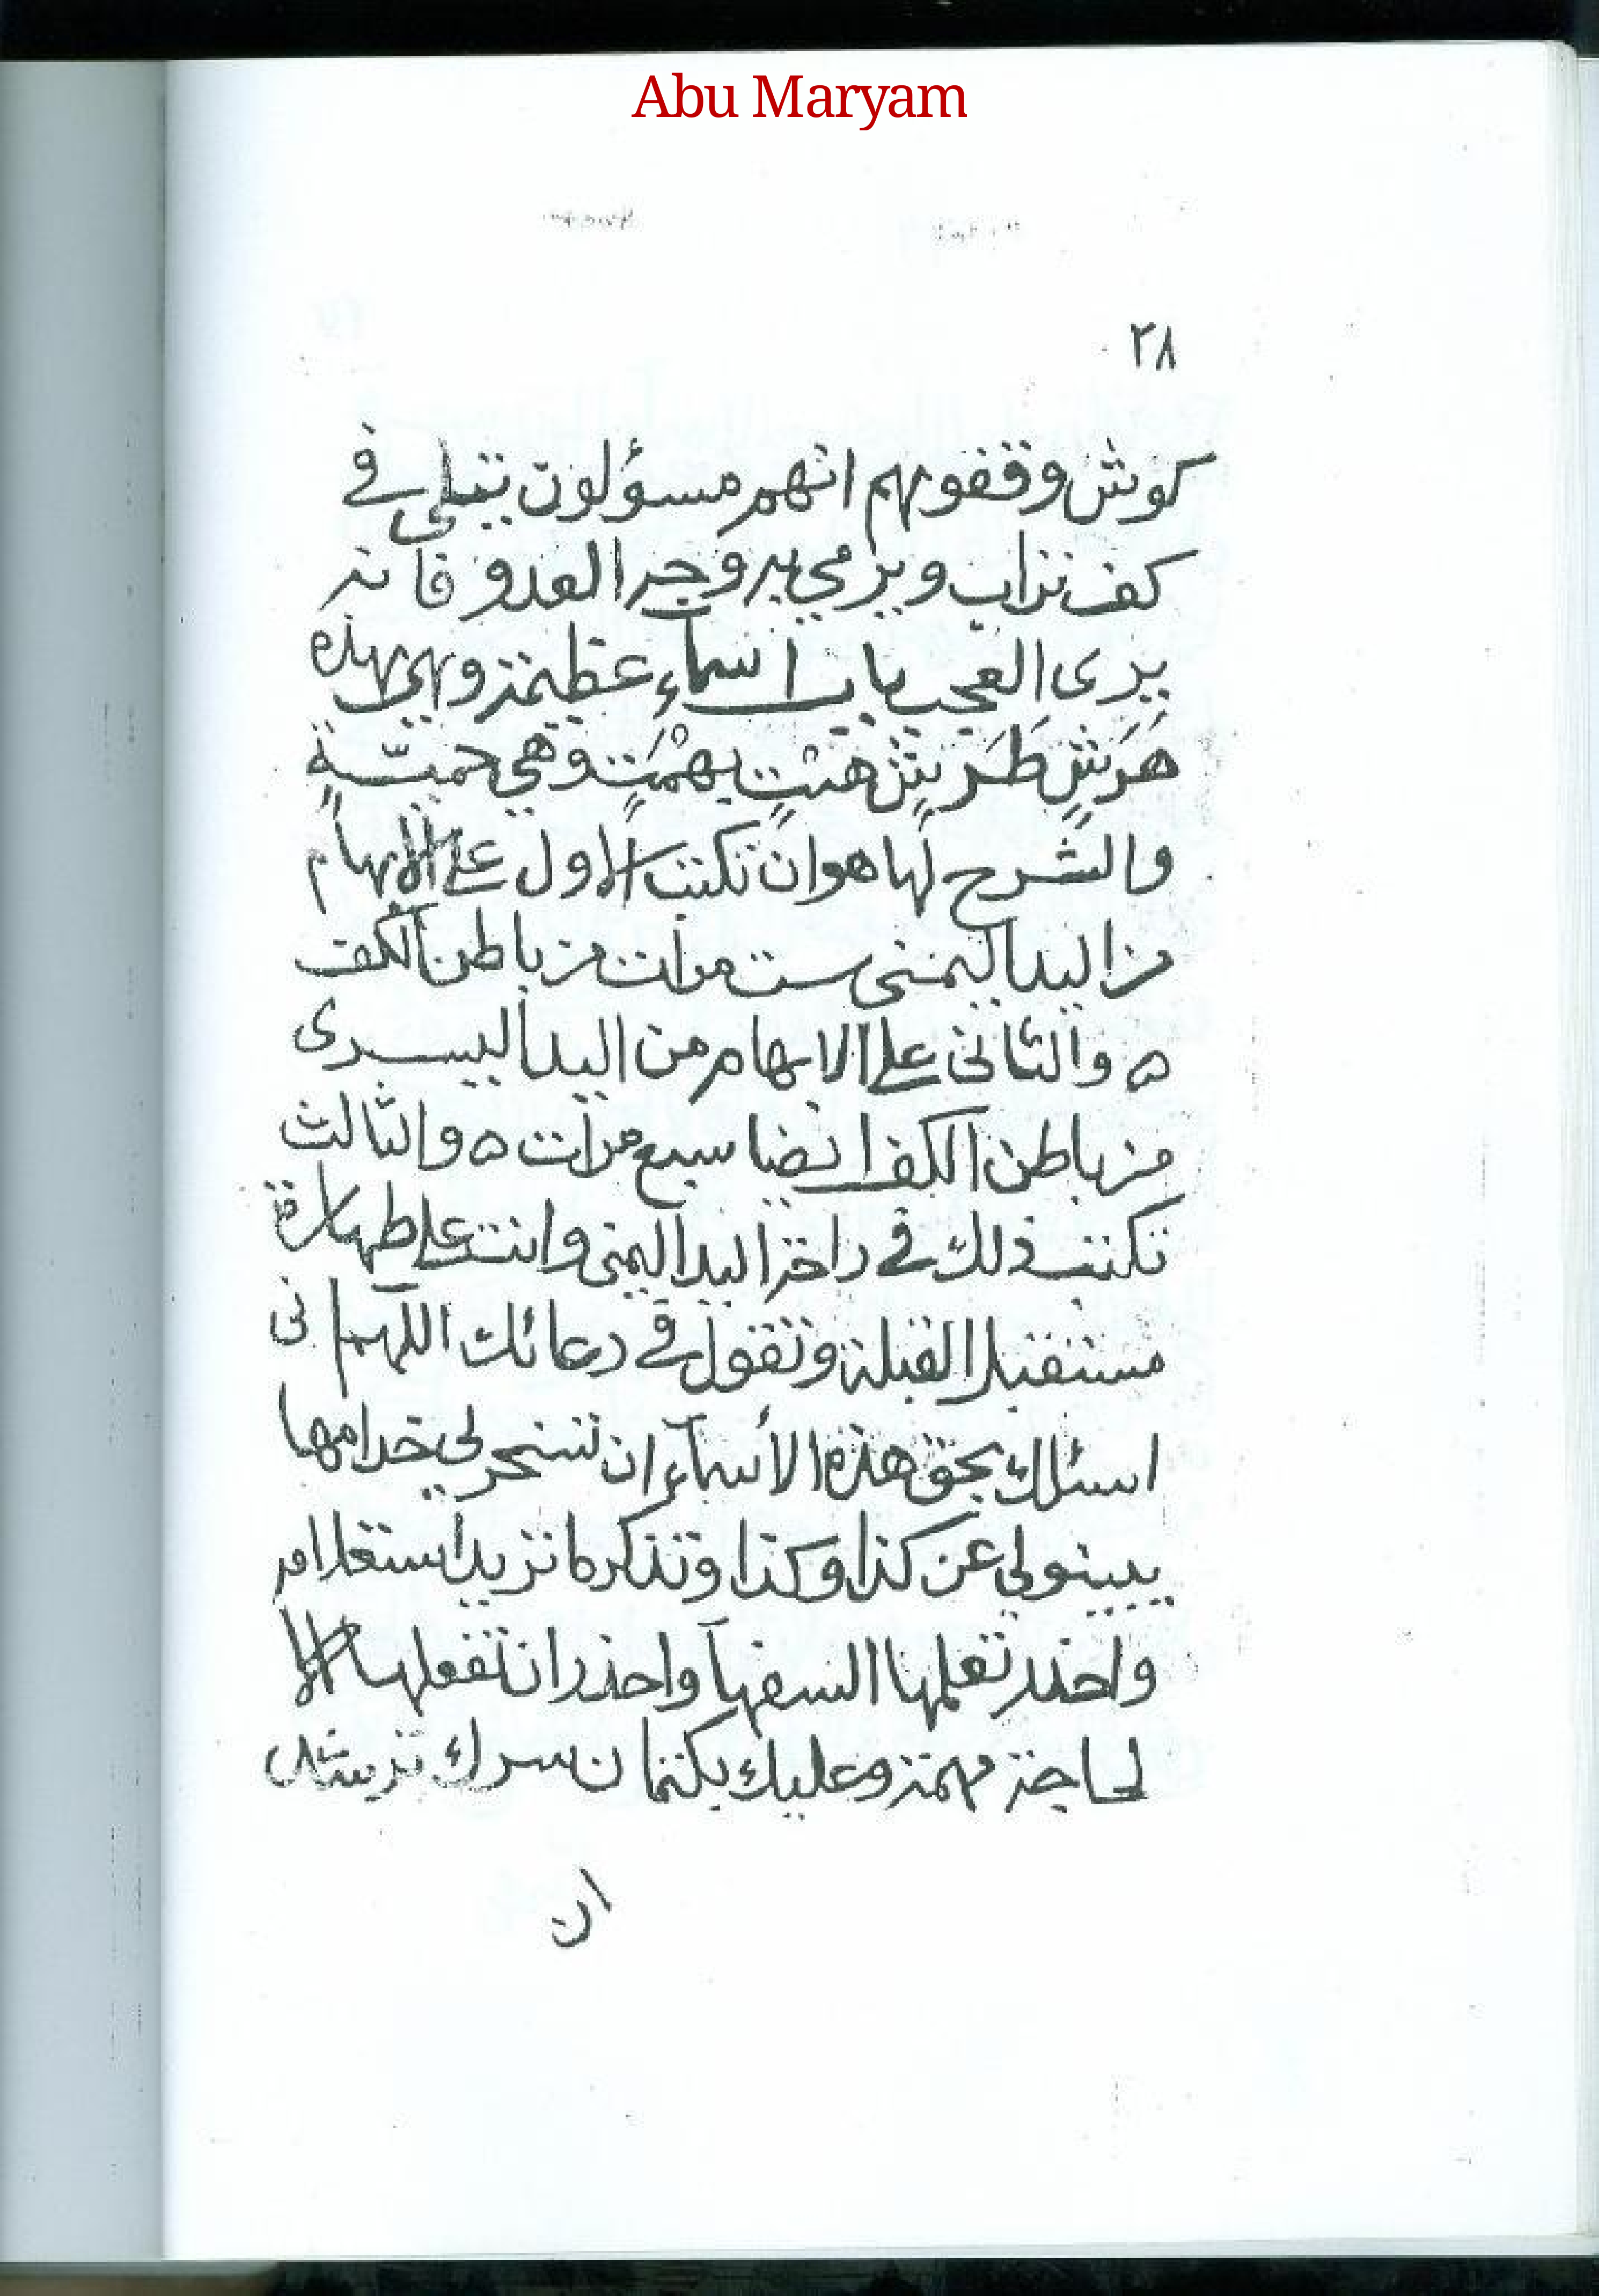 Abu Maryam
٢٨
كوش وقفوهم انهم مسؤلون تتلى في
كف تراب ويرمي به وجه العدو فانه
يرى العجب باب اسماء عظيمة وهي هذه
هَرَشٍ طَرَيشٍ هيتٍ يهمْتٍ وهي حميّـةٍ
والشرح لها هو ان تكتب الاول على الابهام
من اليد اليمنى ست مرات من باطن الكف
ه والثاني على الابهام من اليد اليسرى
من باطن الكف ايضا سبع مرات ه والثالث
تكتب ذلك في راحة اليد اليمنى وانت على طهارة
مستقبل القبلة وتقول في دعائك اللهم اني
اسئلك بحق هذه الأسماء ان تسخر لي خدامها
يبينو لي عن كذا وكذا وتذكر ما تريد استعلامه
واحذر تعلمها السفهآ واحذر ان تفعلها الا
لحاجة مهمة وعليك بكتمان سرك ترشد
ان